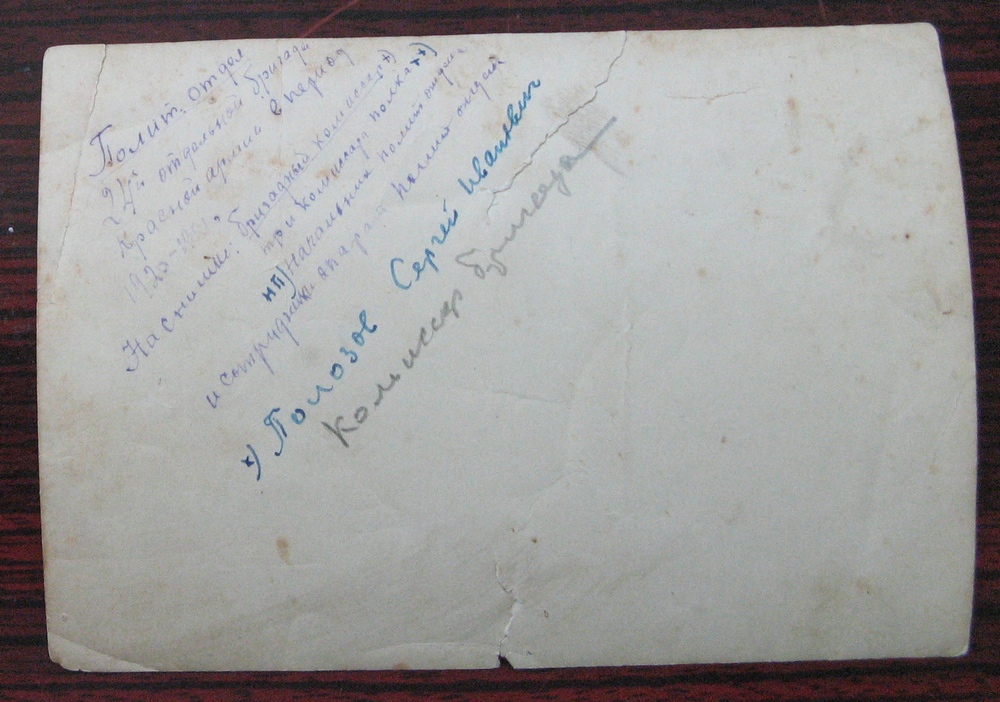 Полит. отдел
24й отдельной бригады
Красной армии в период
1920-1921.
На снимке: бригадный комиссар*)
три комиссара полка**)
нп) Начальник политотдела
и сотрудники аппарата политотдела
*) Полозов Сергей Иванович
Комиссар бригады